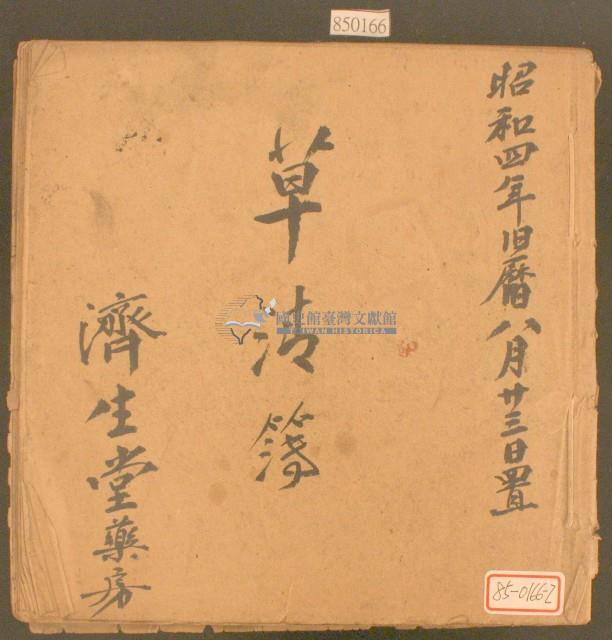 850166
昭和四年旧曆八月廿三日置
草清簿
國史館臺灣文獻館
TAIWAN HISTORICA
濟生堂藥房
85-0166-2